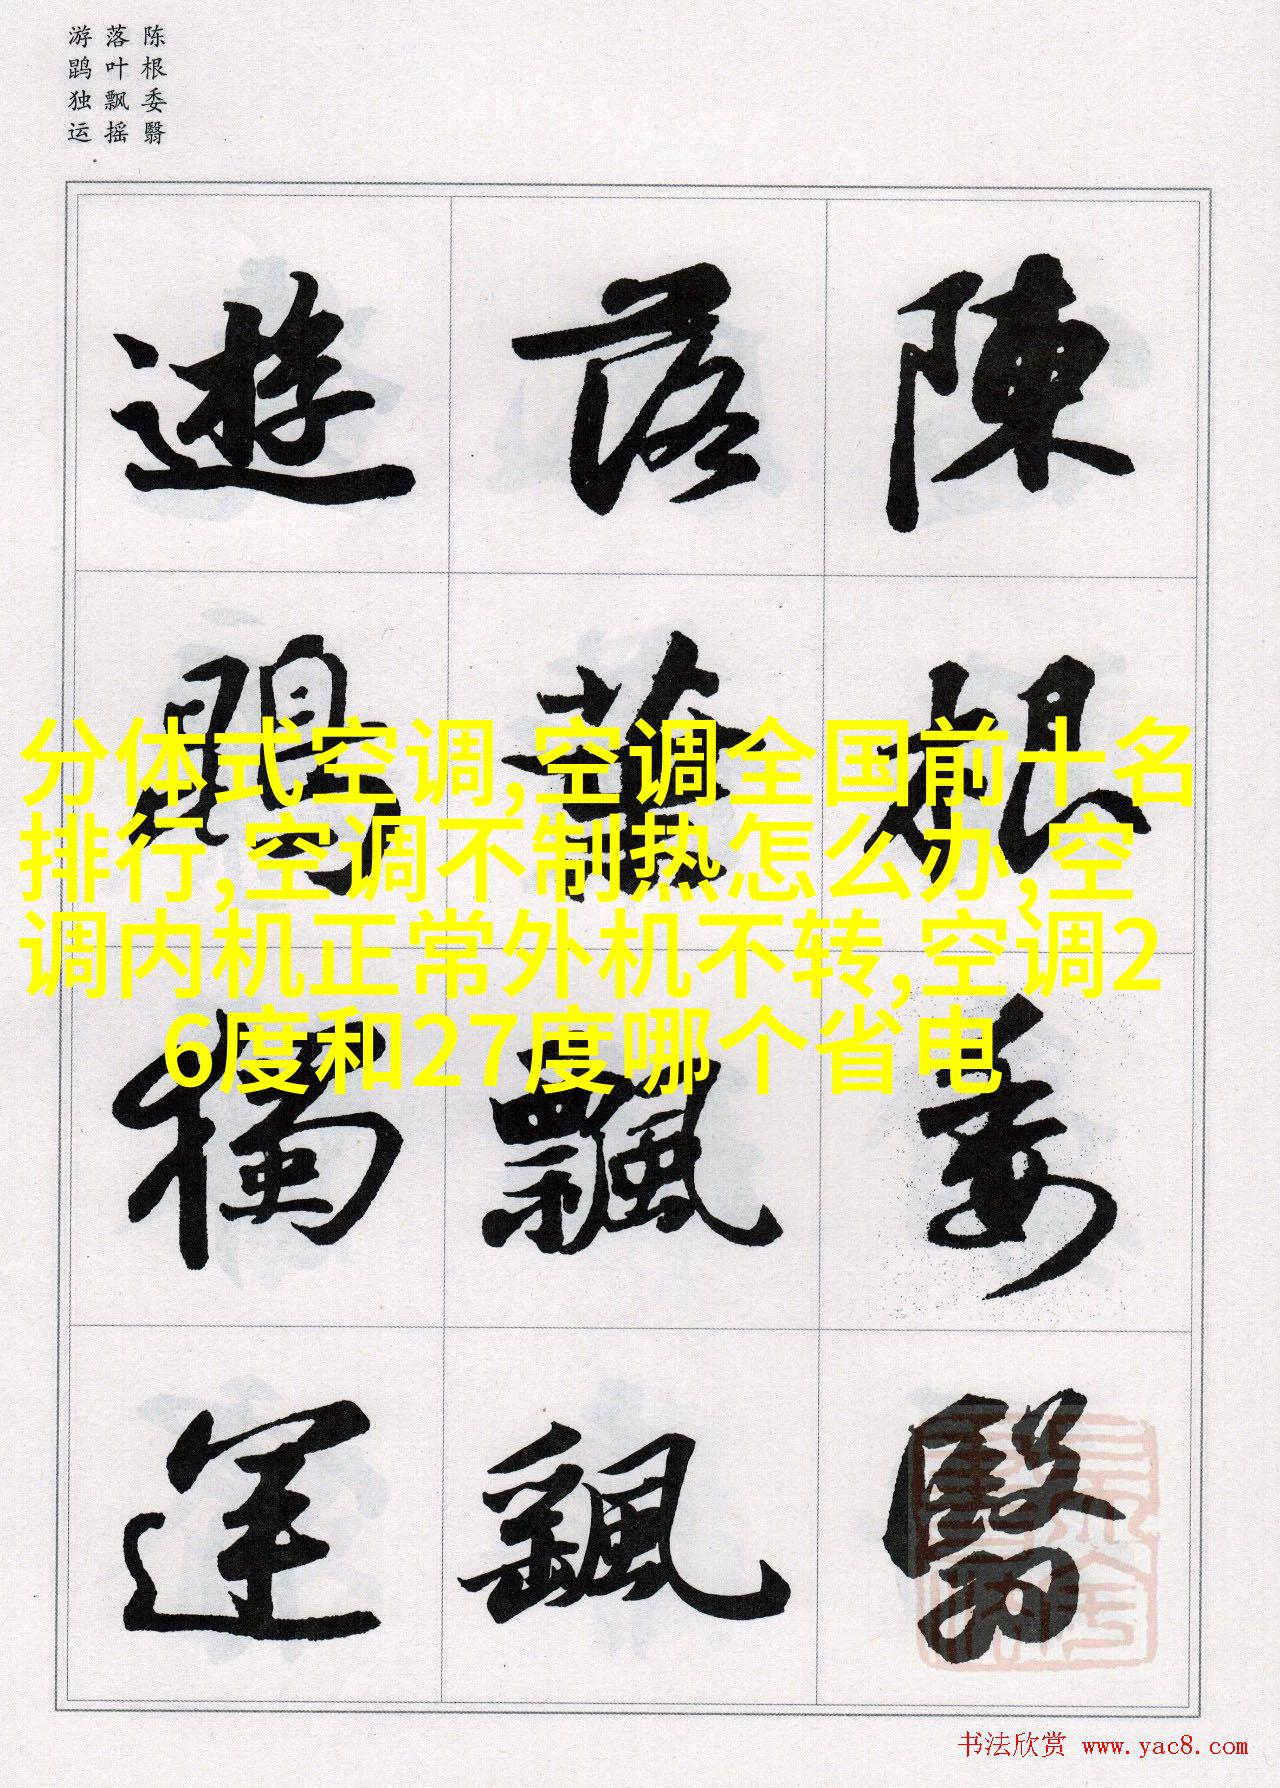 陈根委翳
落叶飘摇
游鹍独运
陳根委翳
落葉飄颻
遊鵾獨運
分体式空调,空调全国前十名
排行,空调不制热怎么办,空
调内机正常外机不转,空调2
6度和27度哪个省电
书法欣赏 www.yac8.com